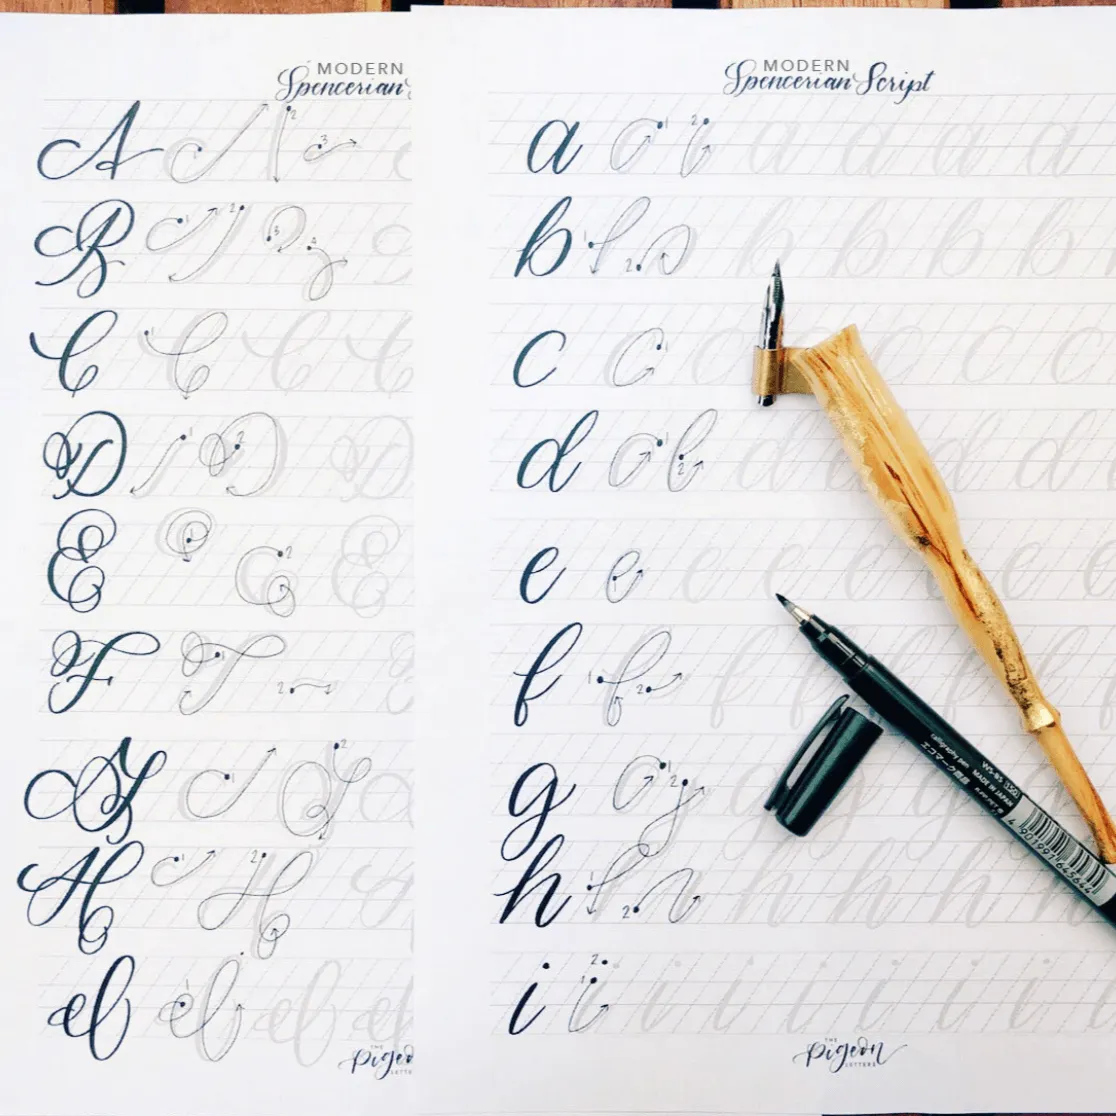 MODERN
Spencerian
A 1 2 3
B 1 2 3 4
C 1 C C
D 1 2 D
E 1 2 E
F 1 2
G 1 2
H 1 2
I 1 I I
THE
Pigeo
LETTE
MODERN
Spencerian Script
a 1 2 a a a a a a
b 1 2 b b b b
c 1 c c c c c
d 1 2 d d d d
e e e e e e e
f 1 2 f f f f f
g 1 2 g g g
h 1 2 h h h h h
i 1 2 i i i i i i i
THE
Pigeon
LETTERS
calligraphy pen
エコマーク商品
MADE IN JAPAN
4 901997 645644